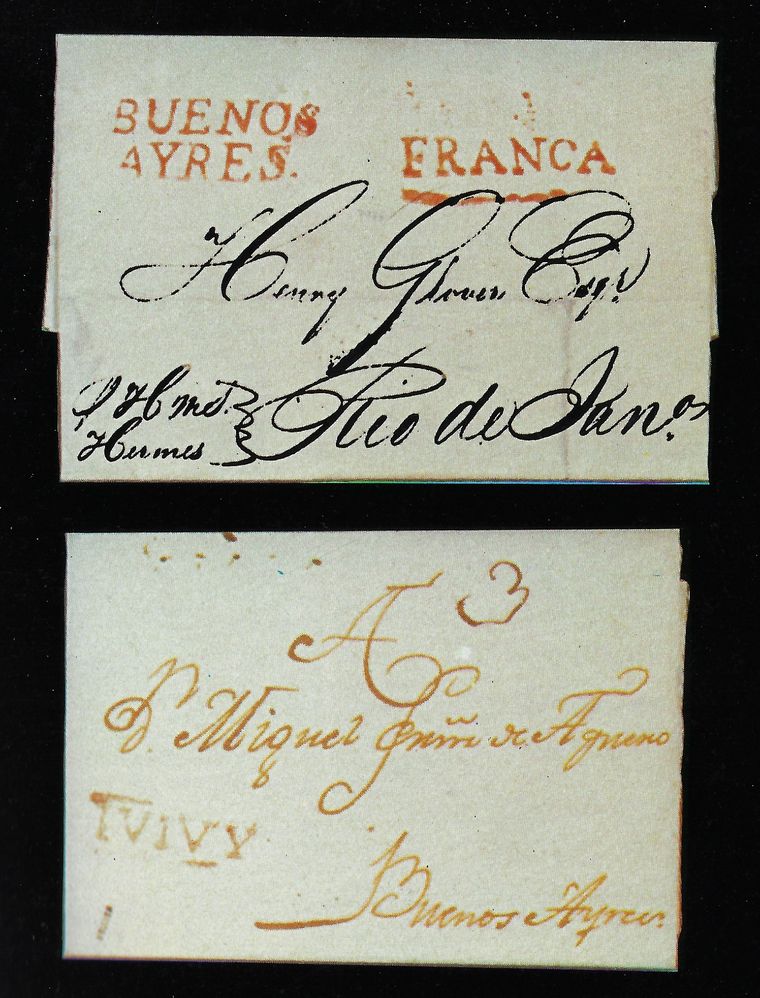 BUENOS
AYRES.
FRANCA
Henry Glover Esqr.
Rio de Janº.
Hermes
A
3
Dn. Miguel de Agueno
IVIVY
Buenos Ayres.